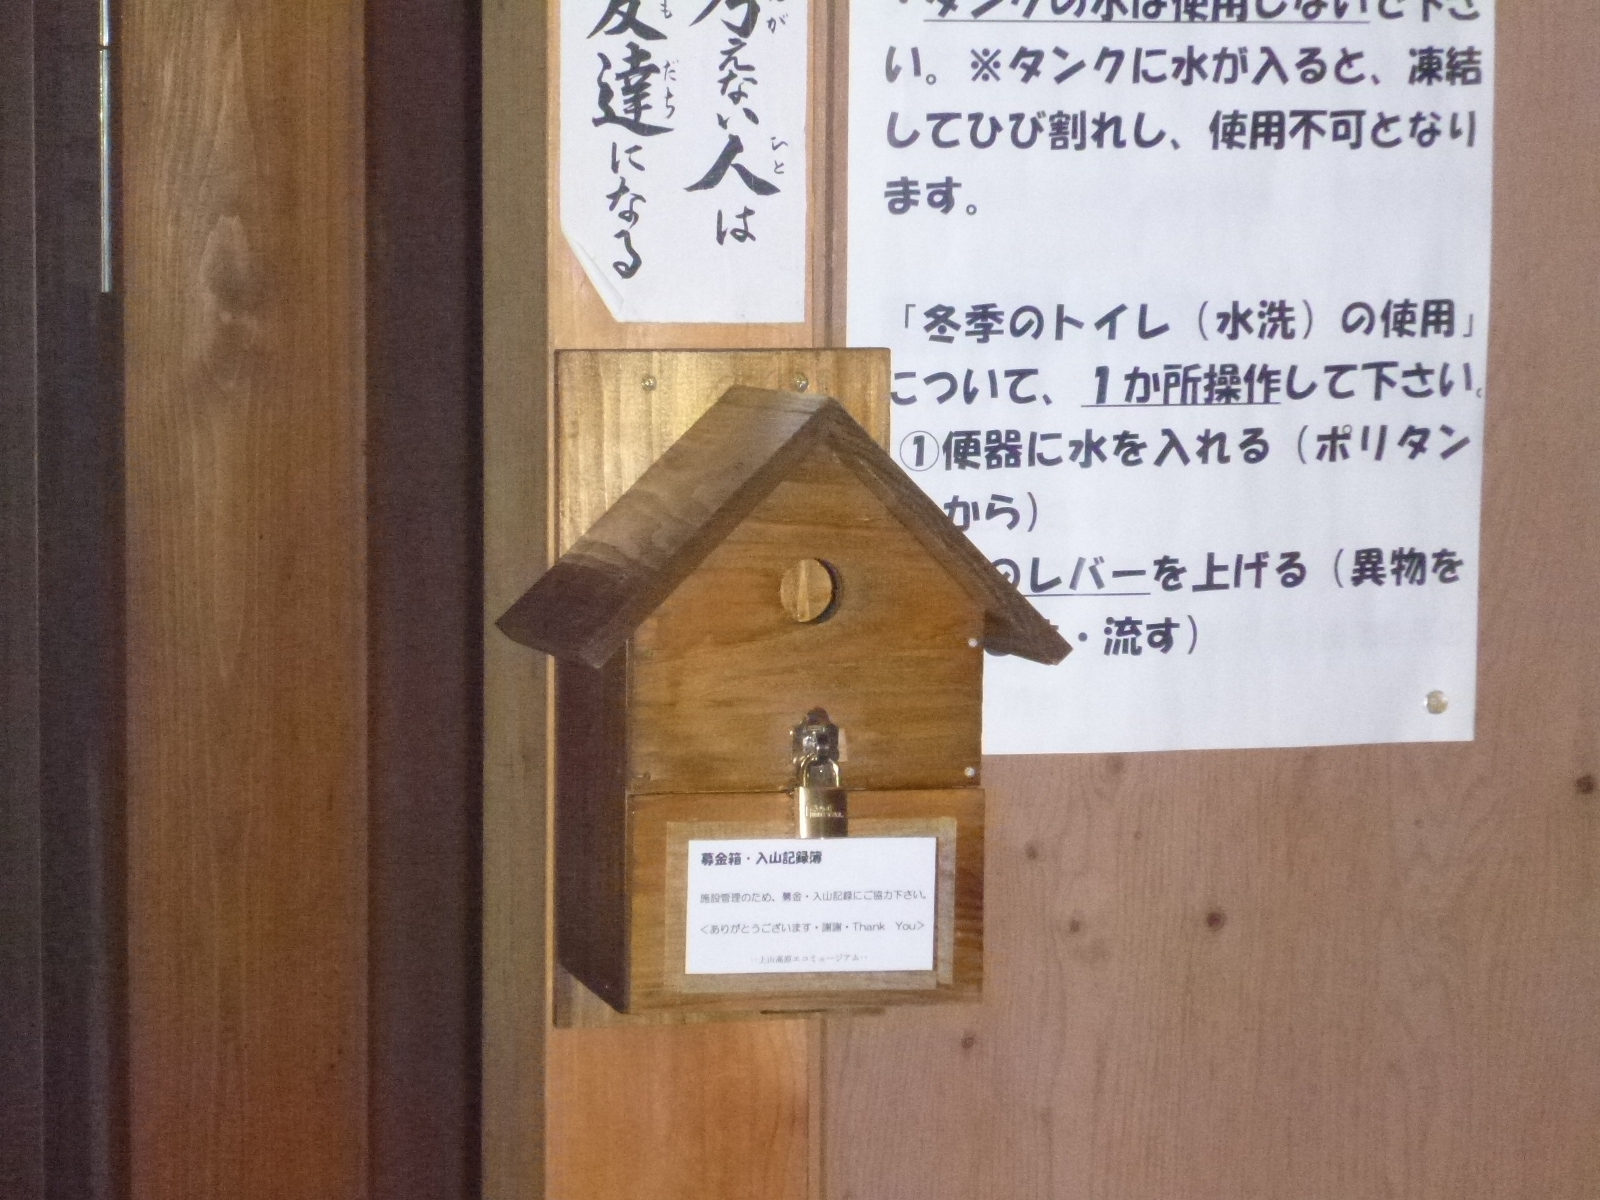 えない人は
ひと
友達になる
もだち
タンクの水は使用しないで下さ
い。※タンクに水が入ると、凍結
してひび割れし、使用不可となり
ます。
「冬季のトイレ（水洗）の使用」
について、１か所操作して下さい。
①便器に水を入れる（ポリタン
から）
のレバーを上げる（異物を
・流す）
募金箱・入山記録簿
施設管理のため、募金・入山記録にご協力下さい。
＜ありがとうございます・謝謝・Thank You＞
－上山高原エコミュージアム－